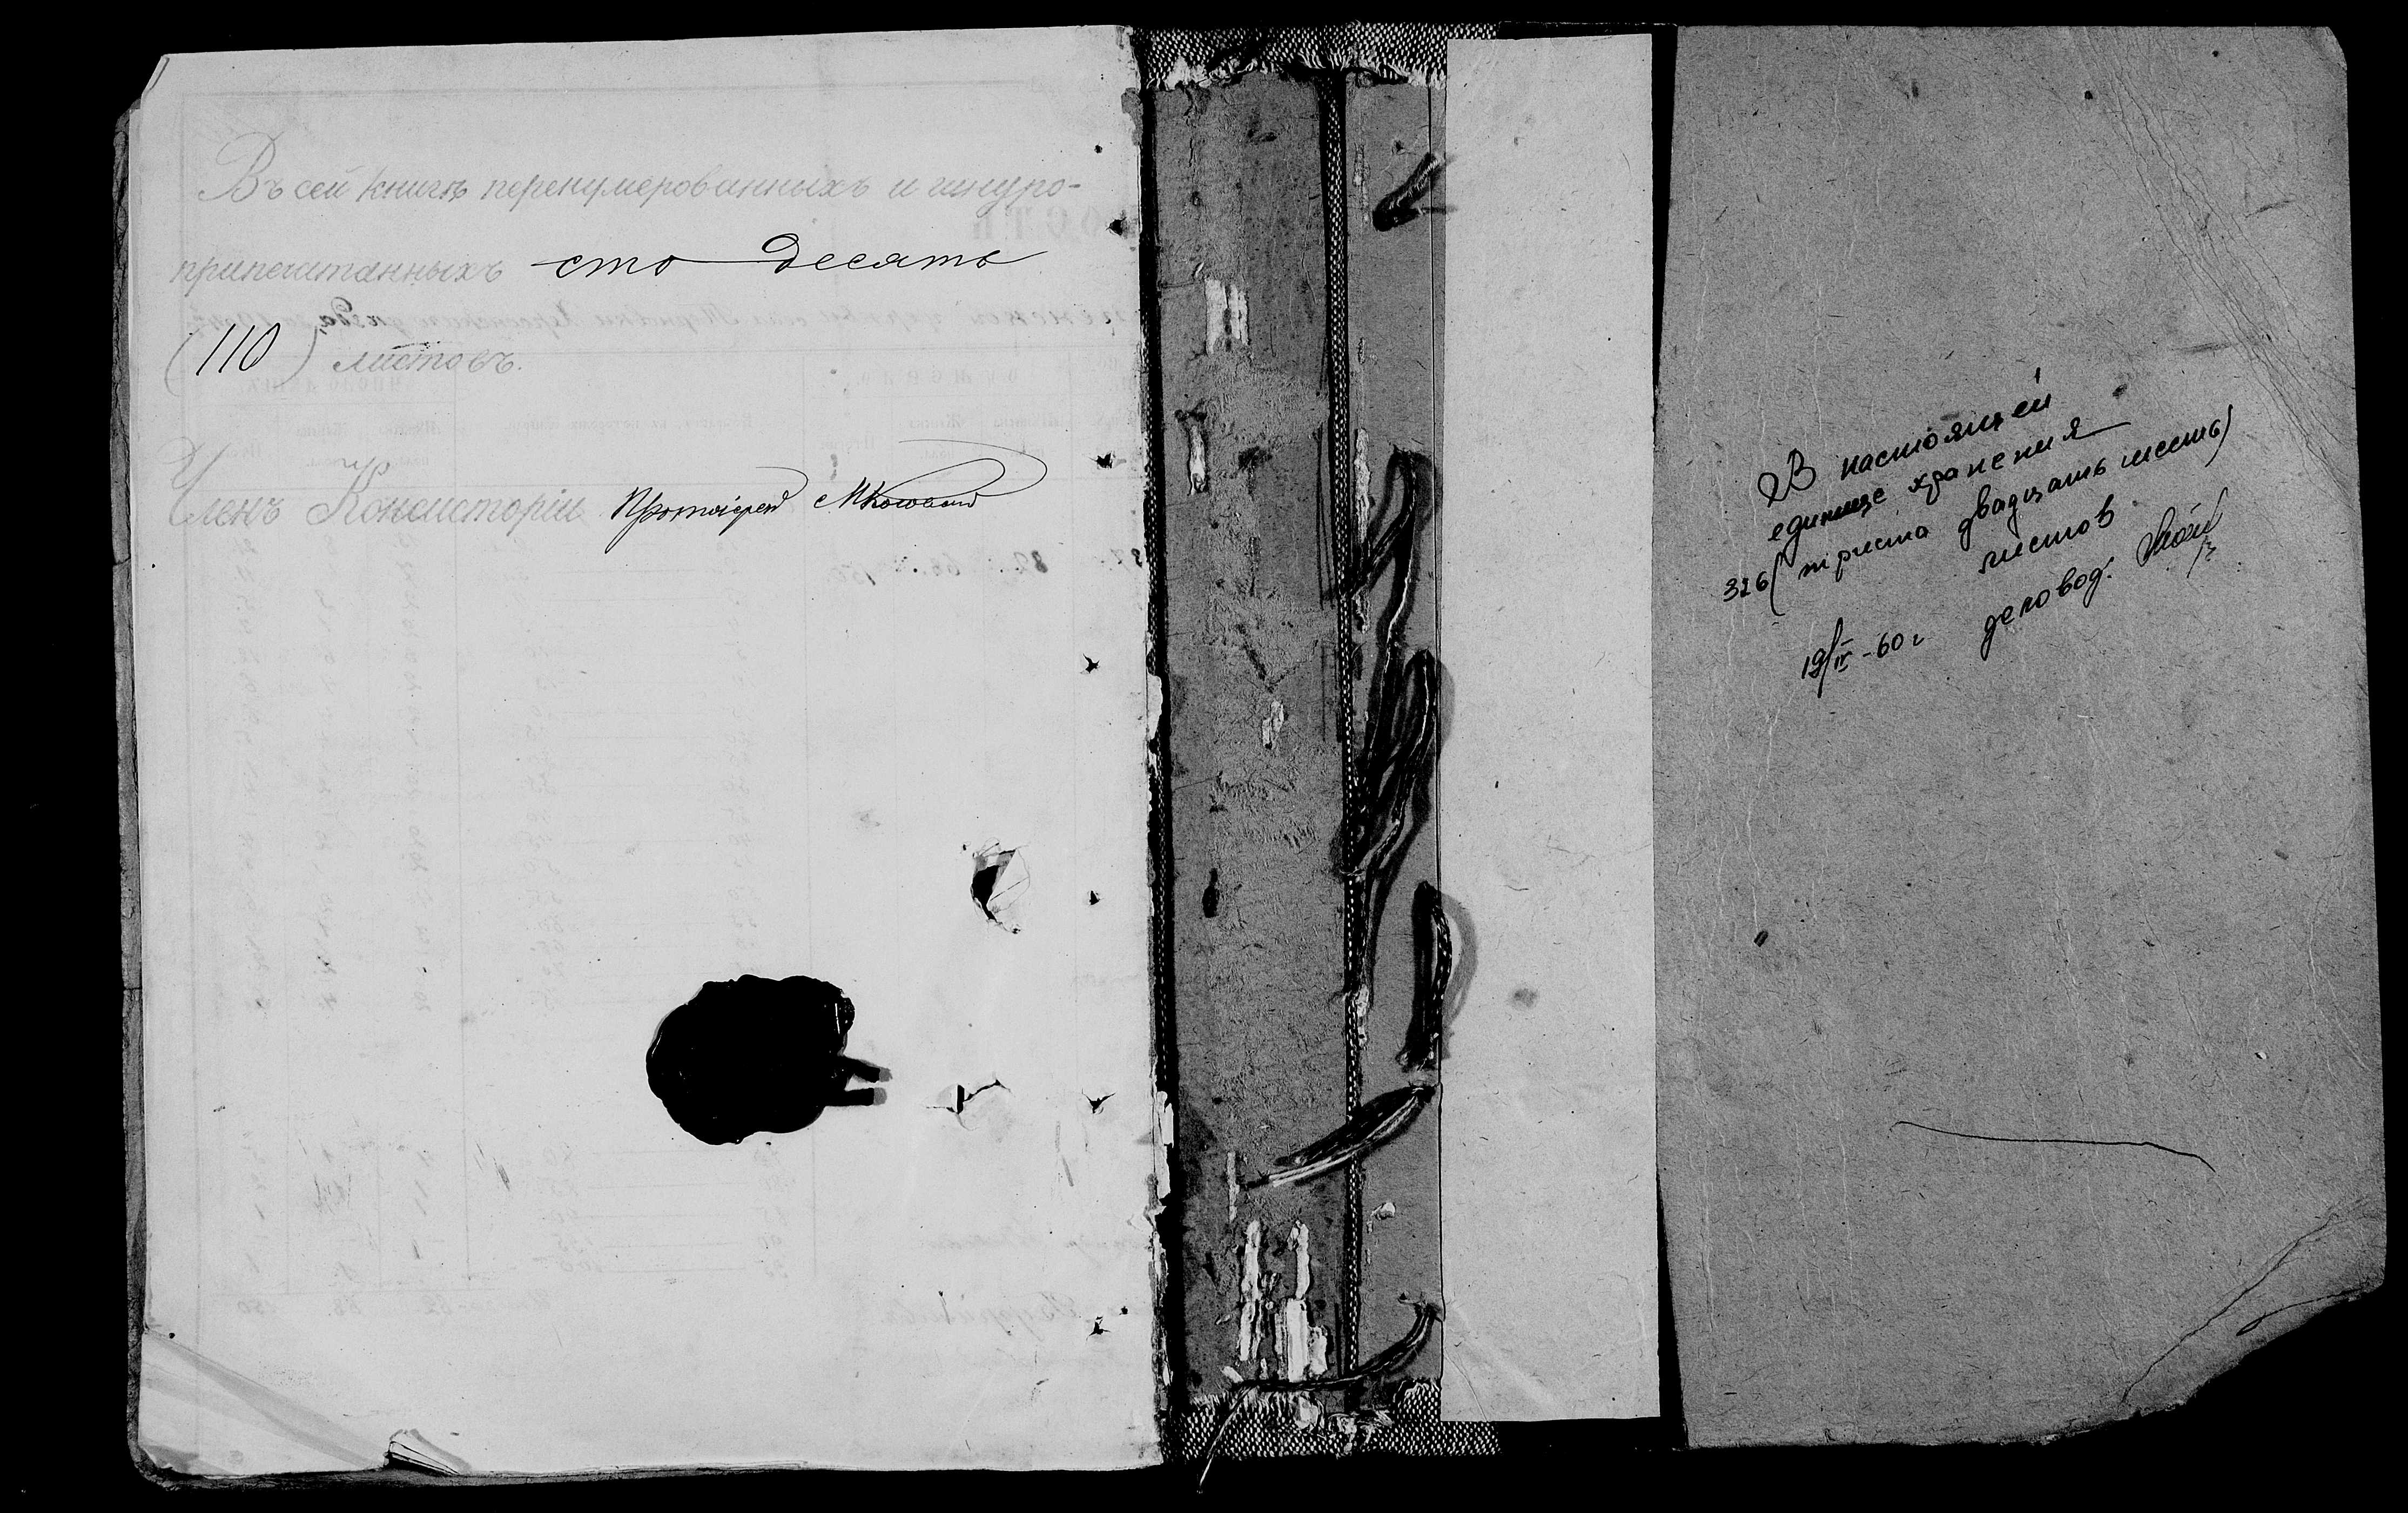 Въ сей книгѣ перенумерованныхъ и шнуро-
припечатанныхъ сто десять
(110) листовъ.
Членъ Консисторіи Протоіерей
В настоящей
единице хранения
326 (триста двадцать шесть)
листов
19/IV-60 г деловод.